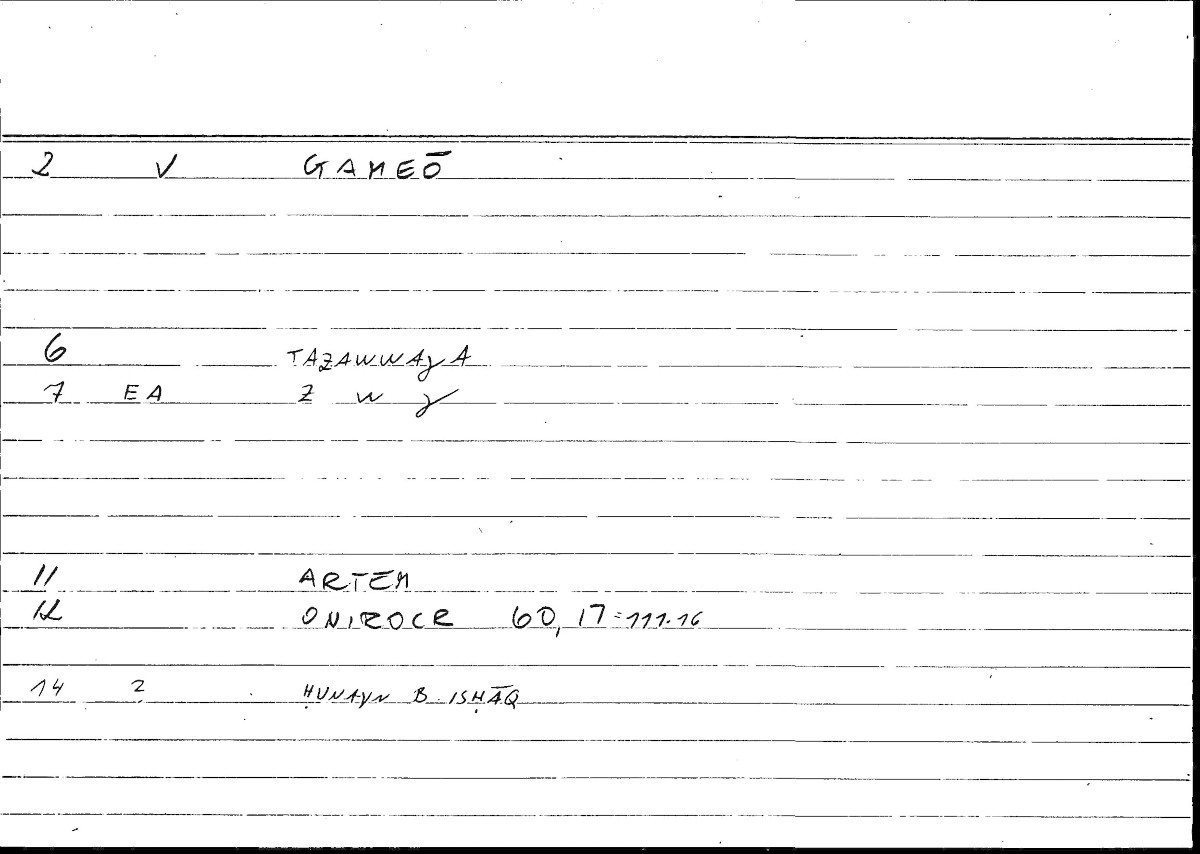 2 V GAMEŌ
6 TAZAWWAJA
7 EA Z W J
11 ARTEM
12 ONIROCR 60, 17=111.16
14 2 ḤUNAYN B. ISḤĀQ